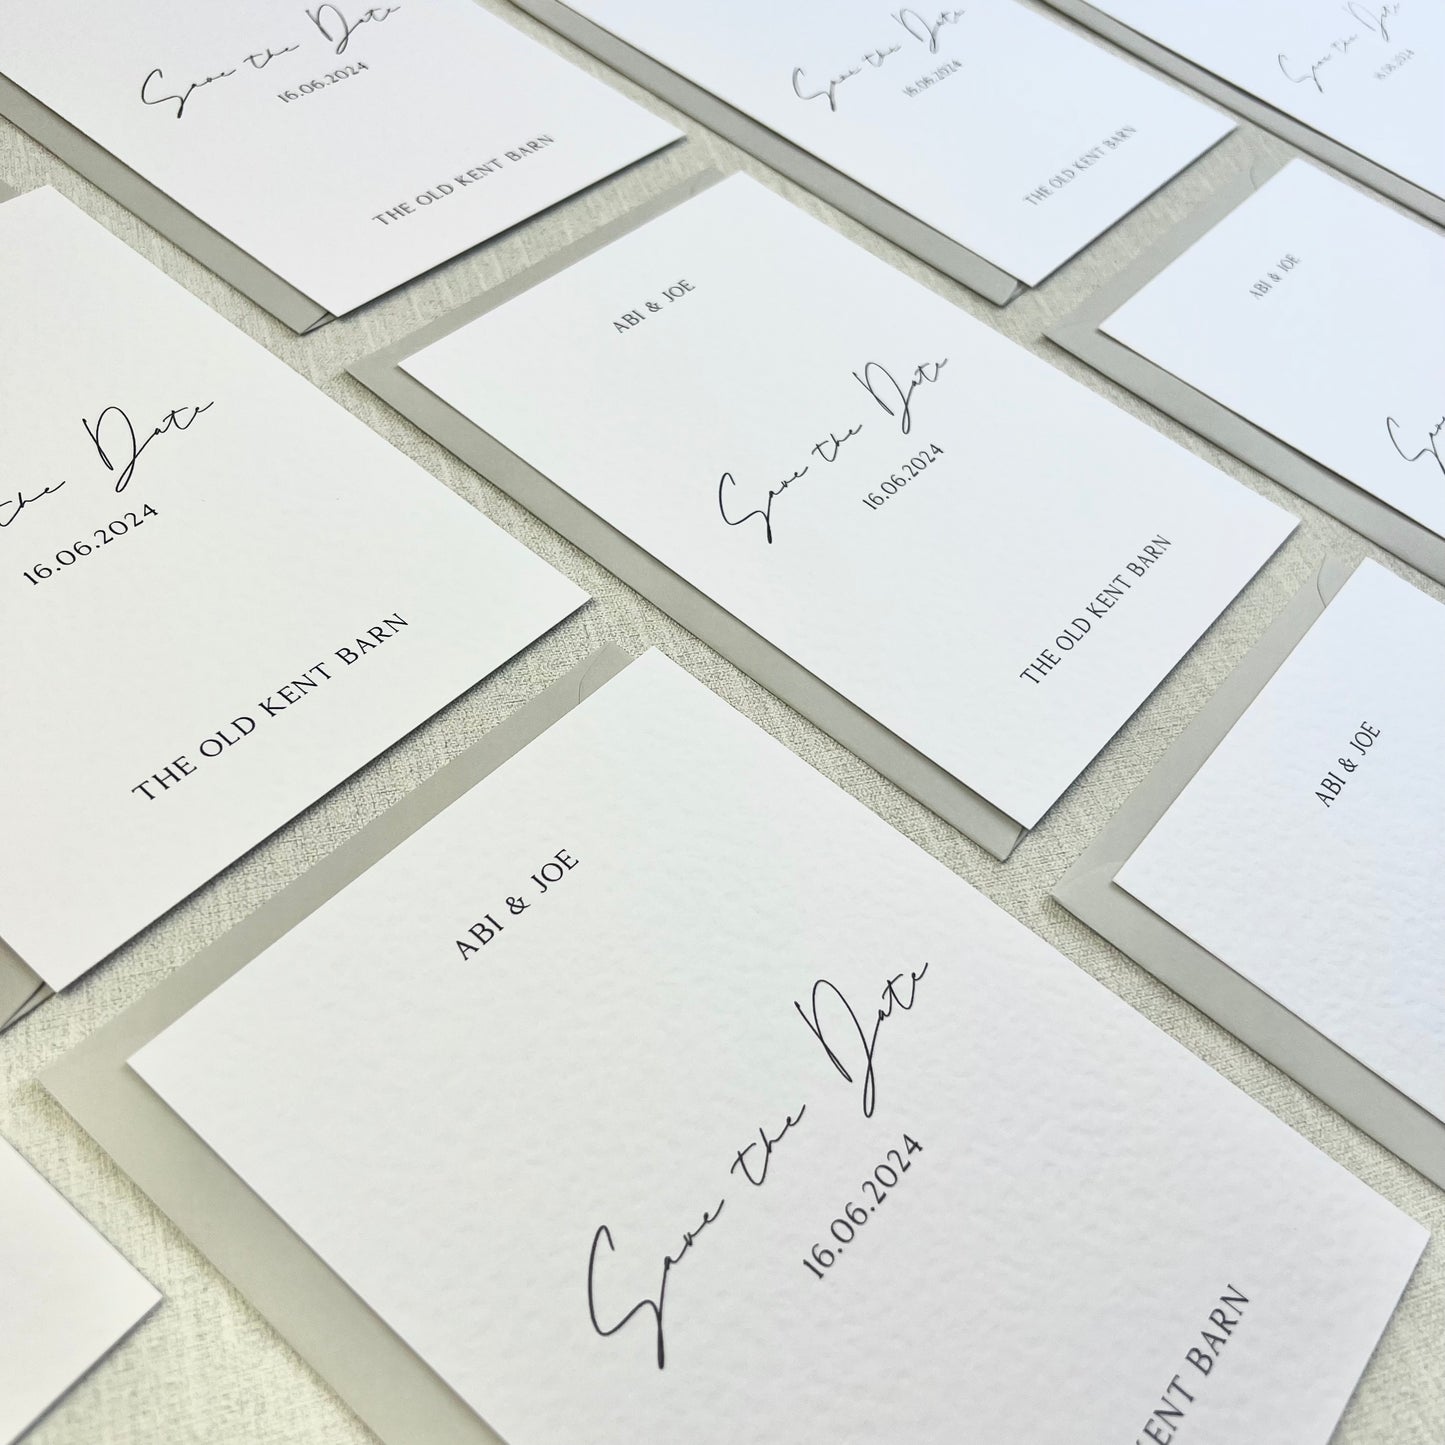 Save the Date
16.06.2024
THE OLD KENT BARN
Save the Date
16.06.2024
THE OLD KENT BARN
Save the Date
16.06.2024
the Date
16.06.2024
THE OLD KENT BARN
ABI & JOE
Save the Date
16.06.2024
THE OLD KENT BARN
ABI & JOE
Save
ABI & JOE
Save the Date
16.06.2024
KENT BARN
ABI & JOE